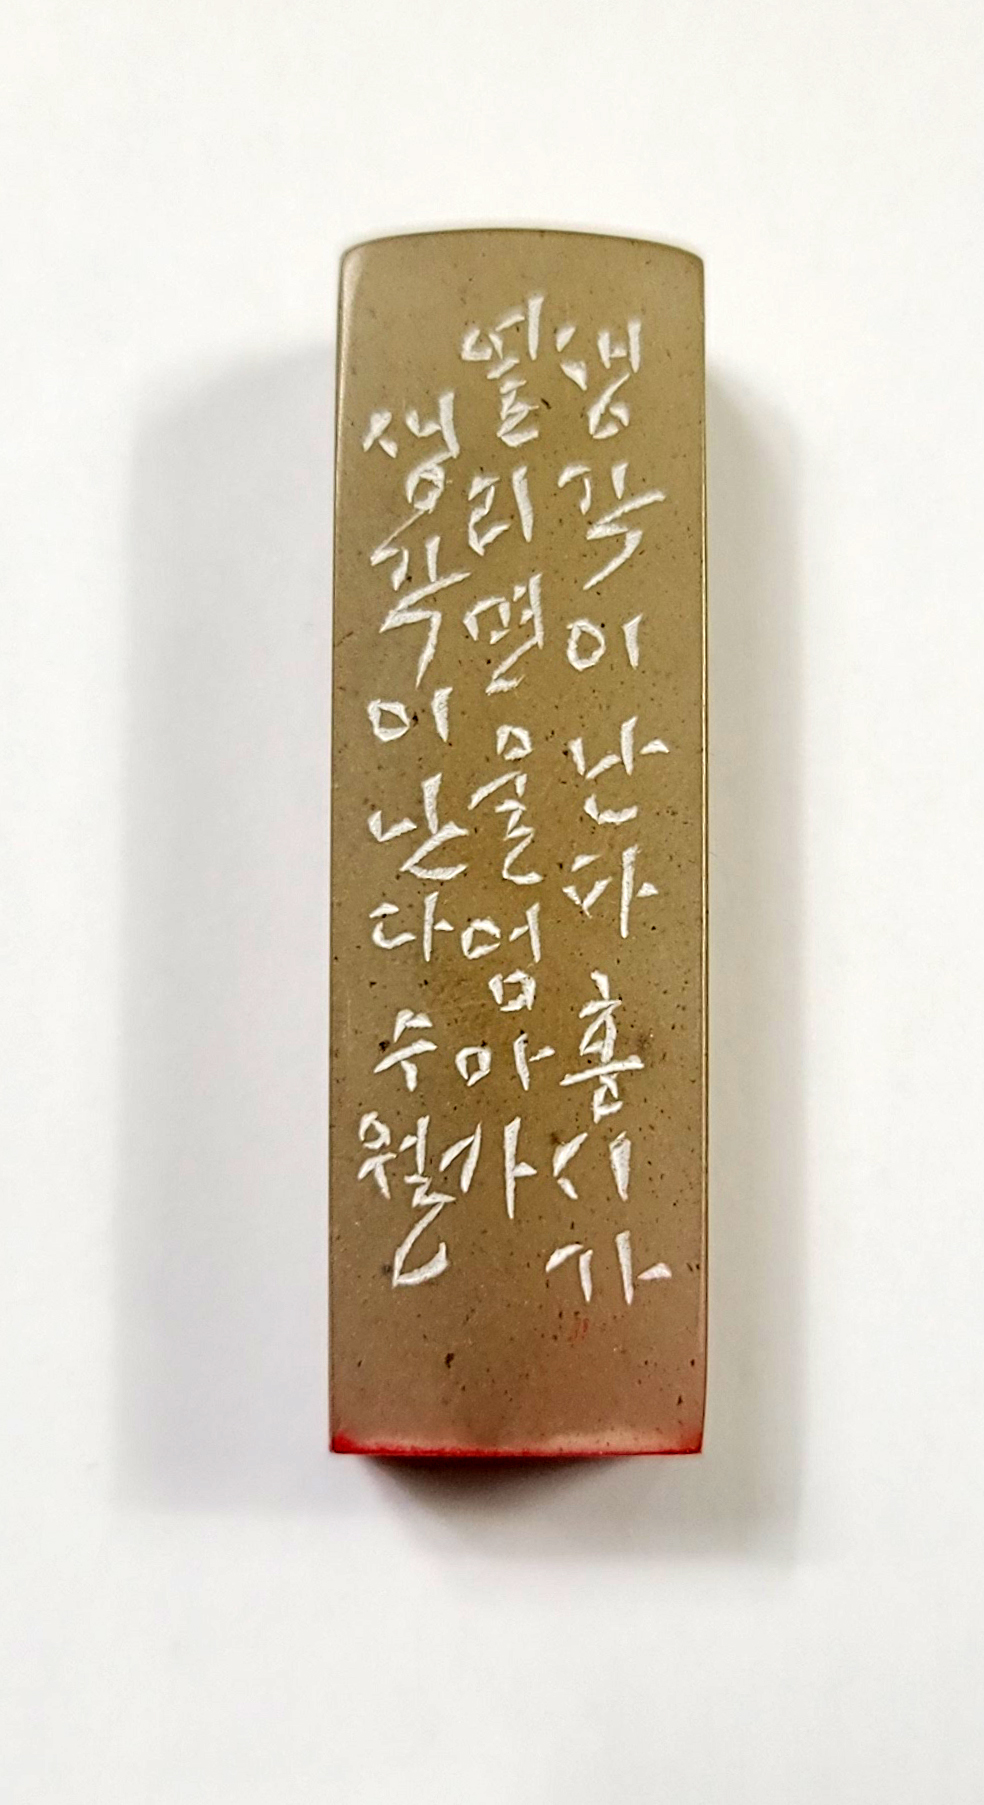 생각이난다홍시가
열리면울엄마가
생각이난다 수월